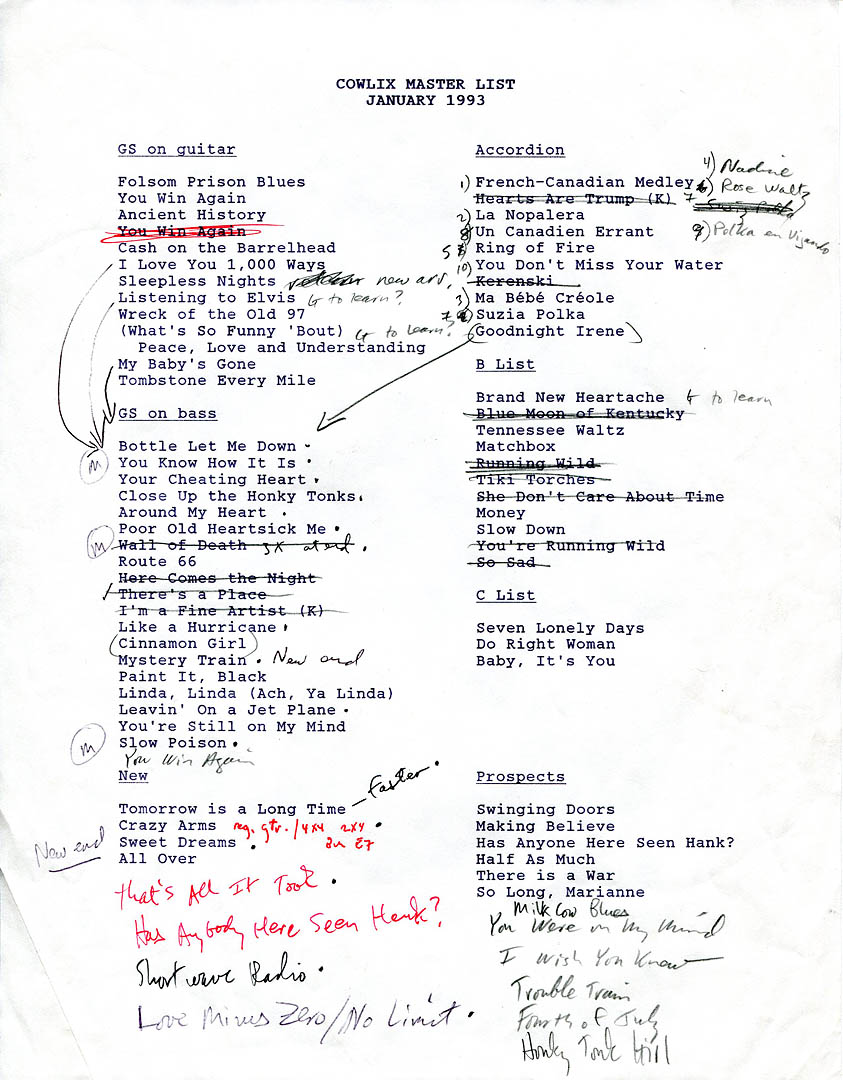 COWLIX MASTER LIST
JANUARY 1993
GS on guitar
Folsom Prison Blues
You Win Again
Ancient History
You Win Again
Cash on the Barrelhead
I Love You 1,000 Ways
Sleepless Nights new arr.
Listening to Elvis G to learn?
Wreck of the Old 97
(What's So Funny 'Bout) G to learn?
Peace, Love and Understanding
My Baby's Gone
Tombstone Every Mile
GS on bass
Bottle Let Me Down
M You Know How It Is
Your Cheating Heart
Close Up the Honky Tonks
Around My Heart
Poor Old Heartsick Me
M Wall of Death 3X at end
Route 66
Here Comes the Night
There's a Place
I'm a Fine Artist (K)
Like a Hurricane
(Cinnamon Girl)
Mystery Train New end
Paint It, Black
Linda, Linda (Ach, Ya Linda)
Leavin' On a Jet Plane
You're Still on My Mind
M Slow Poison
You Win Again
New
Tomorrow is a Long Time – faster
Crazy Arms reg. gtr. / 4x4 2x4
New end Sweet Dreams E7
All Over
That's All It Took
Has Anybody Here Seen Hank?
Shortwave Radio
Love Minus Zero/No Limit
Accordion
4) Nadine
1) French-Canadian Medley
6) Rose Waltz
Hearts Are Trump (K) 7
2) La Nopalera
8 Un Canadien Errant
9) Polka en
5 Ring of Fire
10) You Don't Miss Your Water
Kerenski
3) Ma Bébé Créole
7 Suzia Polka
(Goodnight Irene)
B List
Brand New Heartache G to learn
Blue Moon of Kentucky
Tennessee Waltz
Matchbox
Running Wild
Tiki Torches
She Don't Care About Time
Money
Slow Down
You're Running Wild
So Sad
C List
Seven Lonely Days
Do Right Woman
Baby, It's You
Prospects
Swinging Doors
Making Believe
Has Anyone Here Seen Hank?
Half As Much
There is a War
So Long, Marianne
Milk Cow Blues
You Were on My Mind
I Wish You Knew
Trouble Train
Fourth of July
Honky Tonk Hill